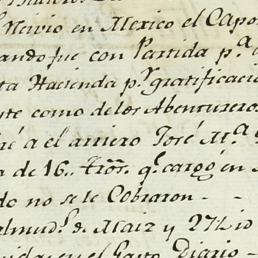 Nervio en Mexico el Capo
ando fue con Partida p.ª
ta Hacienda p.r gratificacio
te como de los Abentureros
é a el arriero José M.ª
a de 16.. q.e cargó en
do no se le Cobraron - -
almud.s de Maiz y 27½ id
en el Gasto Diario -